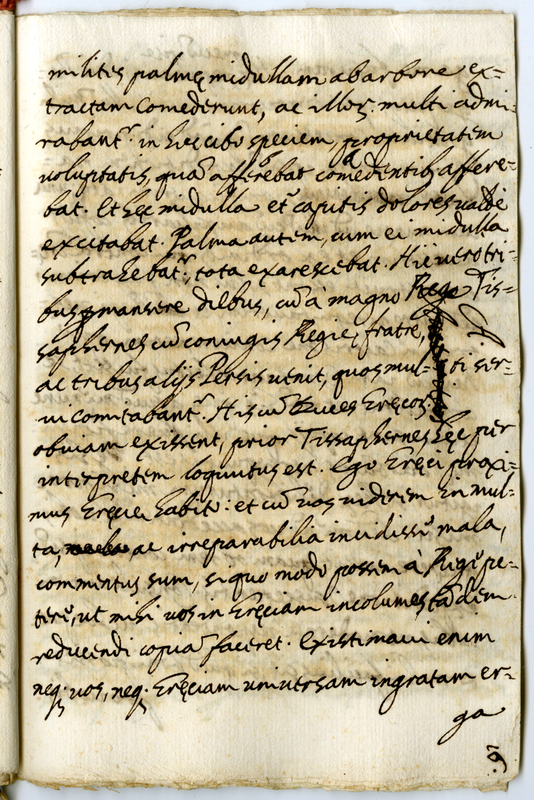 milites palmę midullam ab arbore ex=
tractam comederunt, ac illoꝝ multi admi-
rabantʳ. in hęc cibo speciem, proprietatem
voluptatis, quā afferebat comedentibꝰ affere-
bat. Et hęc midulla etᵃ capitis dolores valde
excitabat. Palma autem, cum ei midulla
subtrahebatʳ, tota exarescebat. Hic vero tri-
bus ꝑmansere diebus, cū à magno Rege Tis=
saphernes cū coniugis Regię, fratre,
ac tribus alijs Persis venit, quos mul- ti ser-
vi comitabantʳ. His cū Duces Gręcoꝝ
obviam exissent, prior Tissaphernes hęc per
interpretem loquutus est. Ego Gręci proxi-
mus Gręcię habito: et cū vos viderem in mul-
ta, ac irreparabilia incidissē mala,
commentus sum, si quo modo possem à Rege pe-
terē, ut mihi vos in Gręciam incolumes tādem
reducendi copiā faceret. Existimavi enim
neqꝫ vos, neqꝫ Gręciam universam ingratam er-
ga